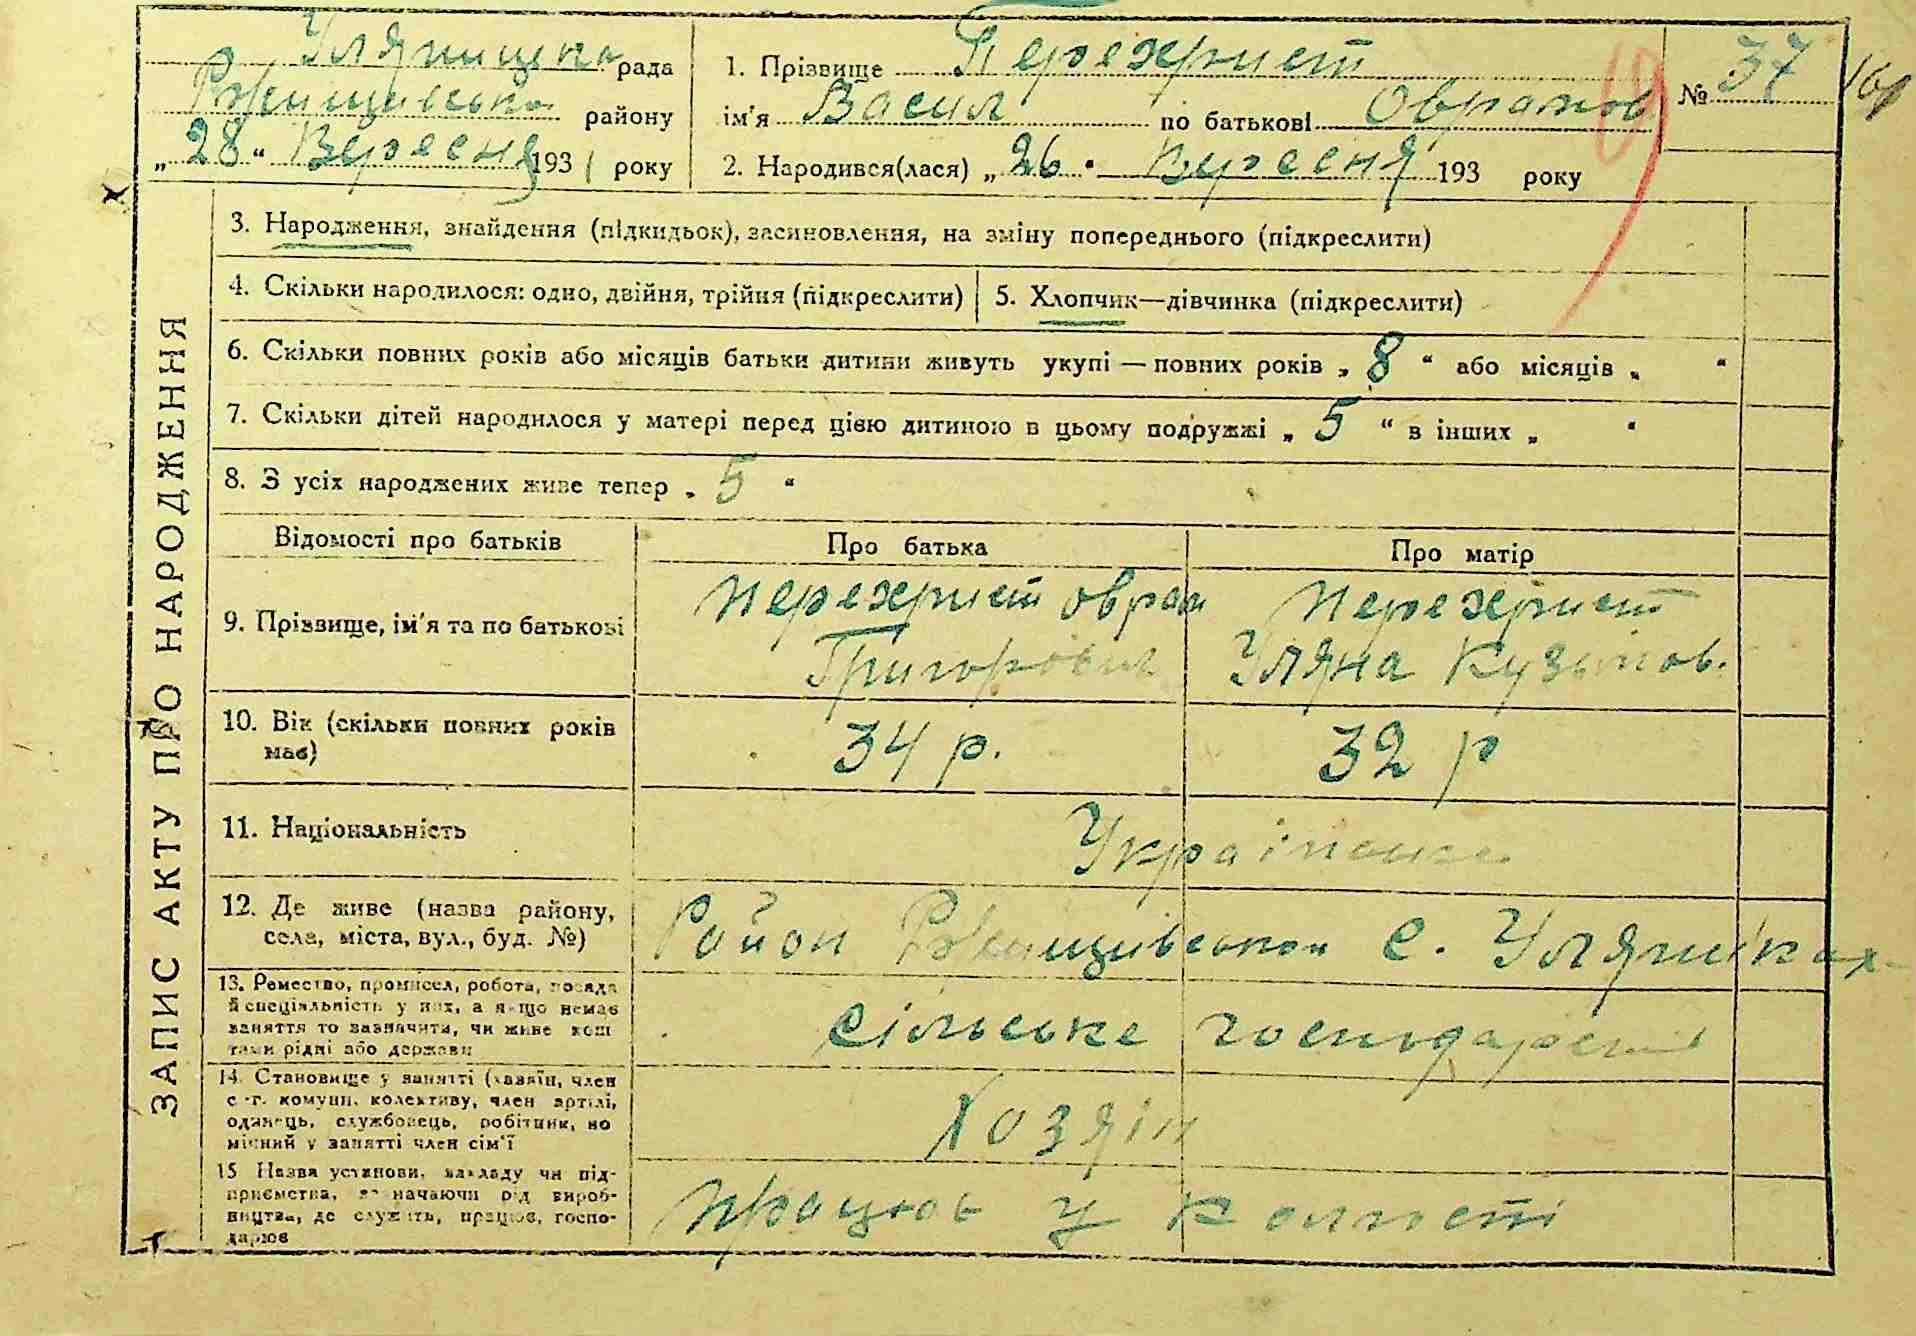 Уляницька рада
Ржищивська району
„ 28 “ Вересня 1931 року
1. Прізвище Перехрист
ім'я Васил по батькові Оврамов
2. Народився(лася) „ 26 “ Вересня 193 року
№ 37
ЗАПИС АКТУ ПРО НАРОДЖЕННЯ
3. Народження, знайдення (підкидьок), засиновлення, на зміну попереднього (підкреслити)
4. Скільки народилося: одно, двійня, трійня (підкреслити) 5. Хлопчик—дівчинка (підкреслити)
6. Скільки повних років або місяців батьки дитини живуть укупі — повних років „ 8 “ або місяців „ “
7. Скільки дітей народилося у матері перед цією дитиною в цьому подружжі „ 5 “ в інших „ “
8. З усіх народжених живе тепер „ 5 “
Відомості про батьків Про батька Про матір
9. Прізвище, ім'я та по батькові
Перехрист Оврам
Григорович
Перехрист
Уляна Кузьмов.
10. Вік (скільки повних років
має)
34 р. 32 р
11. Національність Українська
12. Де живе (назва району,
села, міста, вул., буд. №)
Район Ржищивський с. Уляниках
13. Ремество, промисел, робота, посада
й спеціальність у них, а якщо немає
заняття то зазначити, чи живе кош
тами рідні або держави
сільське господарств
14. Становище у занятті (хазяїн, член
с.-г. комуни, колективу, член артілі,
одинець, службовець, робітник, по
місний у занятті член сім'ї
Хозяін
15 Назва установи, закладу чи під-
приємства, зазначаючи рід вироб-
ництва, де служить, працює, госпо-
дарює
працює у